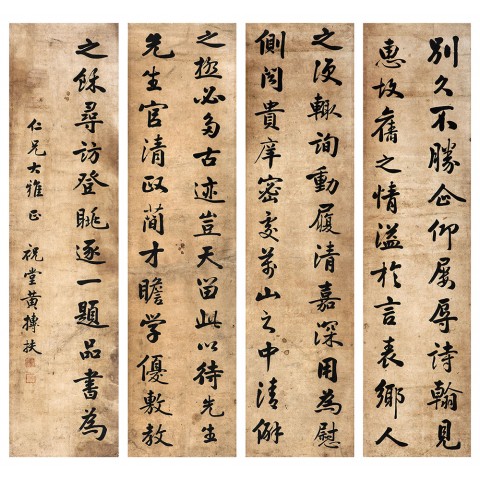 別久不勝企仰屢辱詩翰見
惠故舊之情溢於言表鄉人
之便輒詢動履清嘉深用為慰
側聞貴庠密交萬山之中清僻
之極必多古迹豈天留此以待先生
先生官清政蕳才瞻学優敷教
之餘尋訪登眺逐一題品書為
仁兄大雅正 祝堂黃摶扶